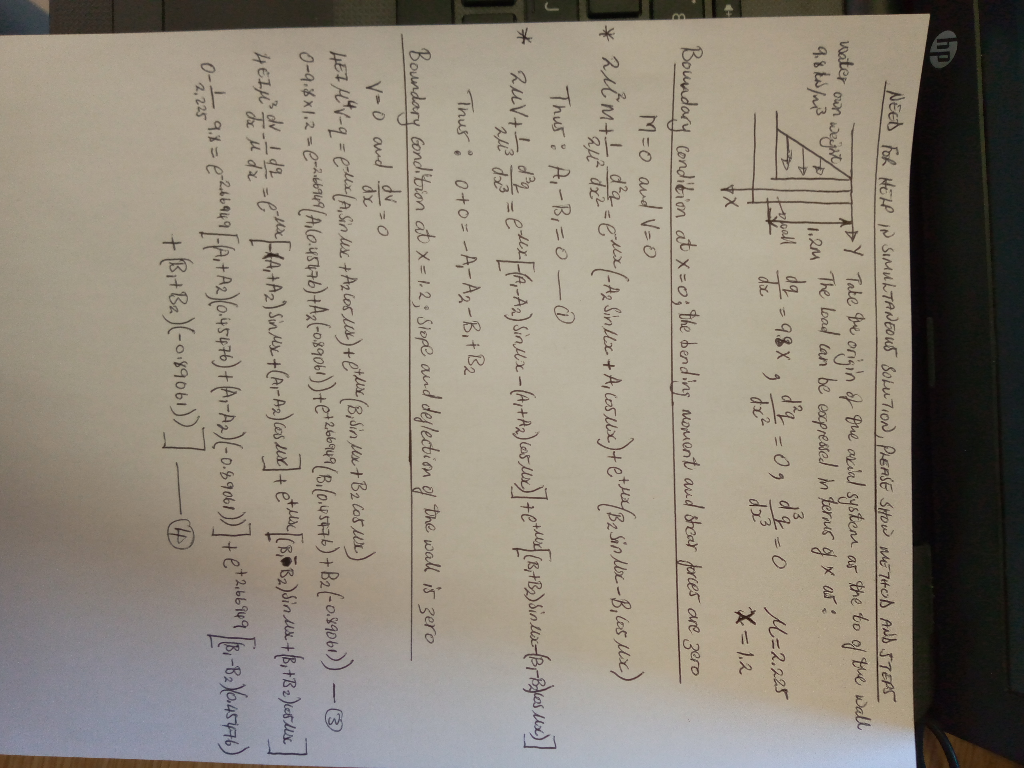 NEED FOR HELP IN SIMULTANEOUS SOLUTION, PLEASE SHOW METHOD AND STEPS
Y Take the origin of the axial system as the to of the wall
water own weight
9.8 kN/m³
The load can be expressed in terms of x as:
1.2m
wall
X
dq/dx = 9.8x, d²q/dx² = 0, d³q/dx³ = 0
μ = 2.225
X = 1.2
Boundary condition at x = 0; the bending moment and shear forces are zero
M = 0 and V = 0
* 2μ²M + 1/2μ² d²q/dx² = e^-μx (-A₂ Sin μx + A₁ cos μx) + e^+μx (B₂ Sin μx - B₁ cos μx)
Thus: A₁ - B₁ = 0 — ①
* 2μV + 1/2μ³ d³q/dx³ = e^-μx [-(A₁-A₂) sin μx - (A₁+A₂) cos μx)] + e^+μx [(B₁+B₂) sin μx - (B₁-B₂) cos μx)]
Thus: 0 + 0 = -A₁ - A₂ - B₁ + B₂
Boundary condition at x = 1.2; Slope and deflection of the wall is zero
V = 0 and dv/dx = 0
4EIμ⁴V - q = e^-μx (A₁ Sin μx + A₂ cos μx) + e^+μx (B₁ sin μx + B₂ cos μx)
0 - 9.8 x 1.2 = e^-2.66949 (A₁(0.45476) + A₂(-0.89061)) + e^+2.66949 (B₁(0.45476) + B₂(-0.89061)) — ③
4EIμ³ dv/dx - 1/μ dq/dx = e^-μx [-(A₁+A₂) sin μx + (A₁-A₂) cos μx] + e^+μx [(B₁-B₂) sin μx + (B₁+B₂) cos μx]
0 - 1/2.225 9.8 = e^-2.66949 [-(A₁+A₂)(0.45476) + (A₁-A₂)(-0.89061))] + e^+2.66949 [(B₁-B₂)(0.45476)
+ (B₁+B₂)(-0.89061))] — ④
hp